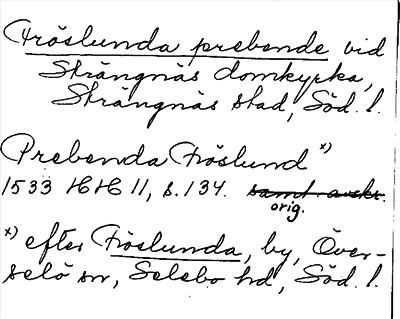 Fröslunda prebende vid
Strängnäs domkyrka,
Strängnäs stad, Söd. l.
Prebenda Fröslund x)
1533 HH 11, s. 134. samt avskr.
orig.
x) efter Fröslunda, by, Över-
selö sn, Selebo hd, Söd. l.